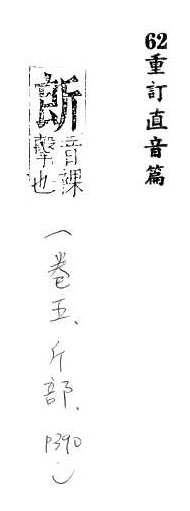 62重訂直音篇
音裸
擊也
（卷五、斤部、P390）